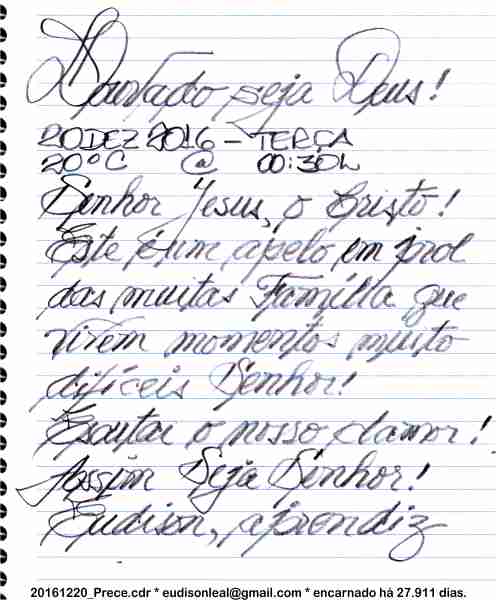 Louvado seja Deus!
20 DEZ 2016 - TERÇA
20°C @ 00:30h
Senhor Jesus, o Cristo!
Este é um apelo em prol
das muitas Família que
vivem momentos muito
difíceis Senhor!
Escutai o nosso clamor!
Assim Seja Senhor!
Eudison, aprendiz
20161220_Prece.cdr * eudisonleal@gmail.com * encarnado há 27.911 dias.